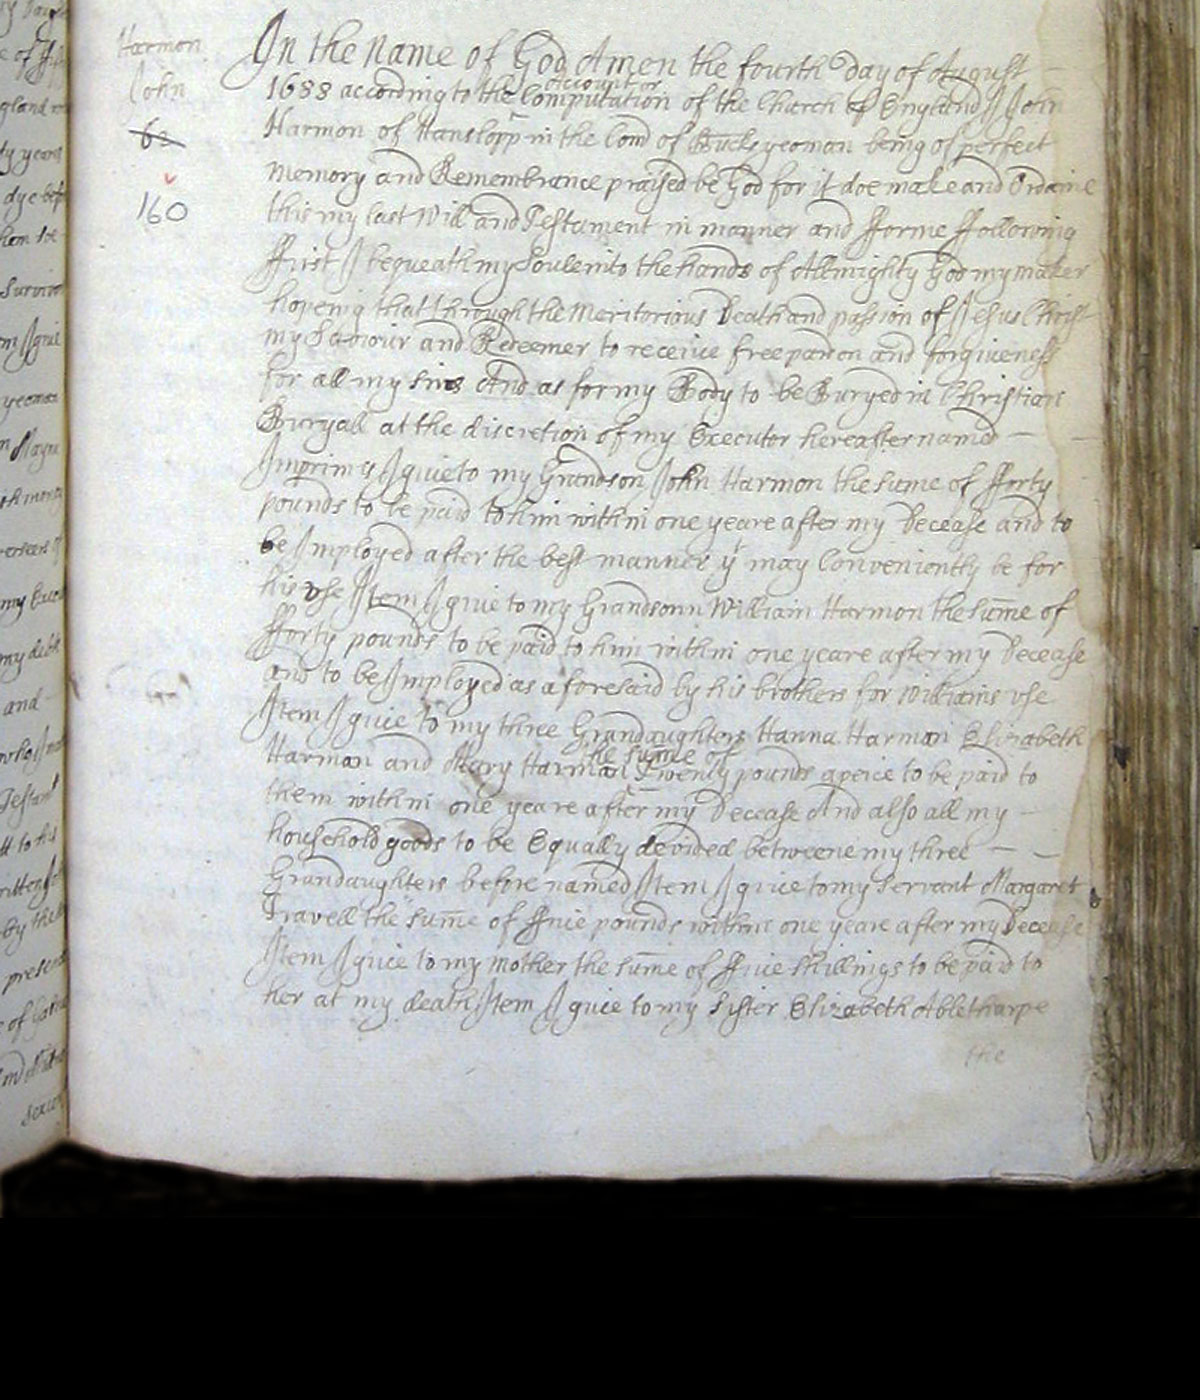 Harmon
John
62
160
In the Name of God Amen the fourth day of August
1688 according to the Account or Computation of the Church of England I John
Harmon of Hanslopp in the Com of Bucks yeoman being of perfect
memory and Remembrance praised be God for it doe make and Ordaine
this my last Will and Testament in manner and fforme ffollowing
ffirst I bequeath my Soule into the hands of Allmighty God my maker
hopeing that through the Meritorious Death and passion of Jesus Christ
my Saviour and Redeemer to receive free pardon and forgiveness
for all my sins And as for my Body to be Buryed in Christian
Buryall at the discretion of my Executor hereafter named
Imprimis I give to my Grandson John Harmon the sume of fforty
pounds to be paid to him within one yeare after my Decease and to
be Imployed after the best manner yt may Conveniently be for
his vse Item I give to my Grandsonn William Harmon the sume of
fforty pounds to be paid to him within one yeare after my Decease
and to be Imployed as aforesaid by his brothers for Williams vse
Item I give to my three Grandaughters Hanna Harman Elizabeth
Harman and Mary Harman the sume of Twenty pounds apeice to be paid to
them within one yeare after my Decease And also all my
household goods to be Equally devided betweene my three
Grandaughters before named Item I give to my Servant Margaret
Travell the sume of ffive pounds within one yeare after my Decease
Item I give to my mother the sume of ffive shillings to be paid to
her at my death Item I give to my Sister Elizabeth Ablethorpe
the